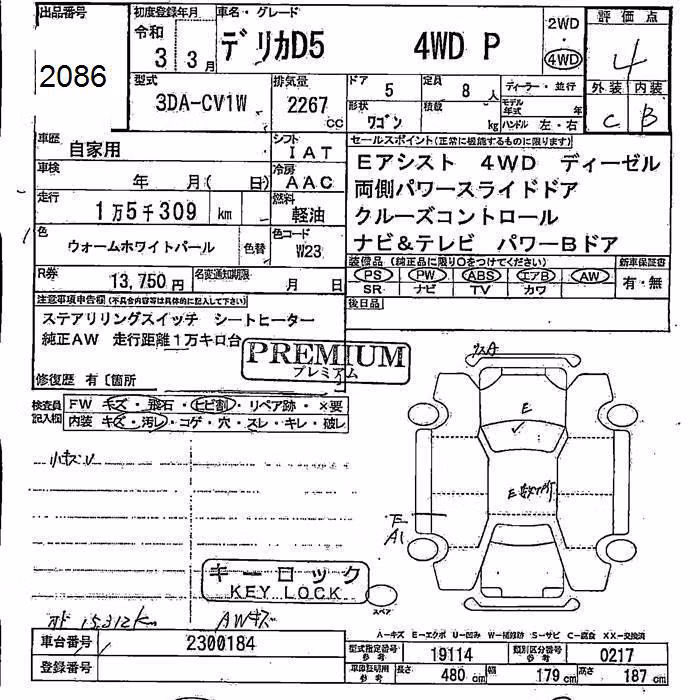 出品番号 初度登録年月 車名・グレード 評価点
2086 令和 3年 3月 デリカD5 4WD P 2WD ・ 4WD 4
型式 排気量 ドア 定員 ディーラー・並行 外装 内装
3DA-CV1W 2267cc 5 8人 モデル年式 年 C B
形状 ワゴン 積載 kg ハンドル 左・右
車歴 自家用 シフト IAT セールスポイント(正常に機能するものに限ります)
車検 年 月( 日) 冷房 AAC Eアシスト 4WD ディーゼル
走行 1万5千309 km 燃料 軽油 両側パワースライドドア
色 ウォームホワイトパール 色替 色コード W23 クルーズコントロール
ナビ&テレビ パワーBドア
R券 13,750円 名変通知期限 月 日 装備品(純正品に限り○をつけてください) 新車保証書
PS PW ABS エアB AW 有・無
SR ナビ TV カワ
注意事項申告欄(不具合内容等は具体的に記入して下さい) 後日品
ステアリリングスイッチ シートヒーター
純正AW 走行距離1万キロ台
PREMIUM
プレミアム
修復歴 有〔箇所
検査員記入欄 FW キズ・飛石・ヒビ割・リペア跡・×要
内装 キズ・汚レ・コゲ・穴・スレ・キレ・破レ
小キズU
E
A1
キーロック
KEY LOCK
スペア
15312km AWキズ
A-キズ E-エクボ U-凹み W-補修跡 S-サビ C-腐食 XX-交換済
車台番号 2300184 型式指定番号 参考 19114 類別区分番号 参考 0217
登録番号 車庫証明用 参考 長さ 480cm 幅 179cm 高さ 187cm